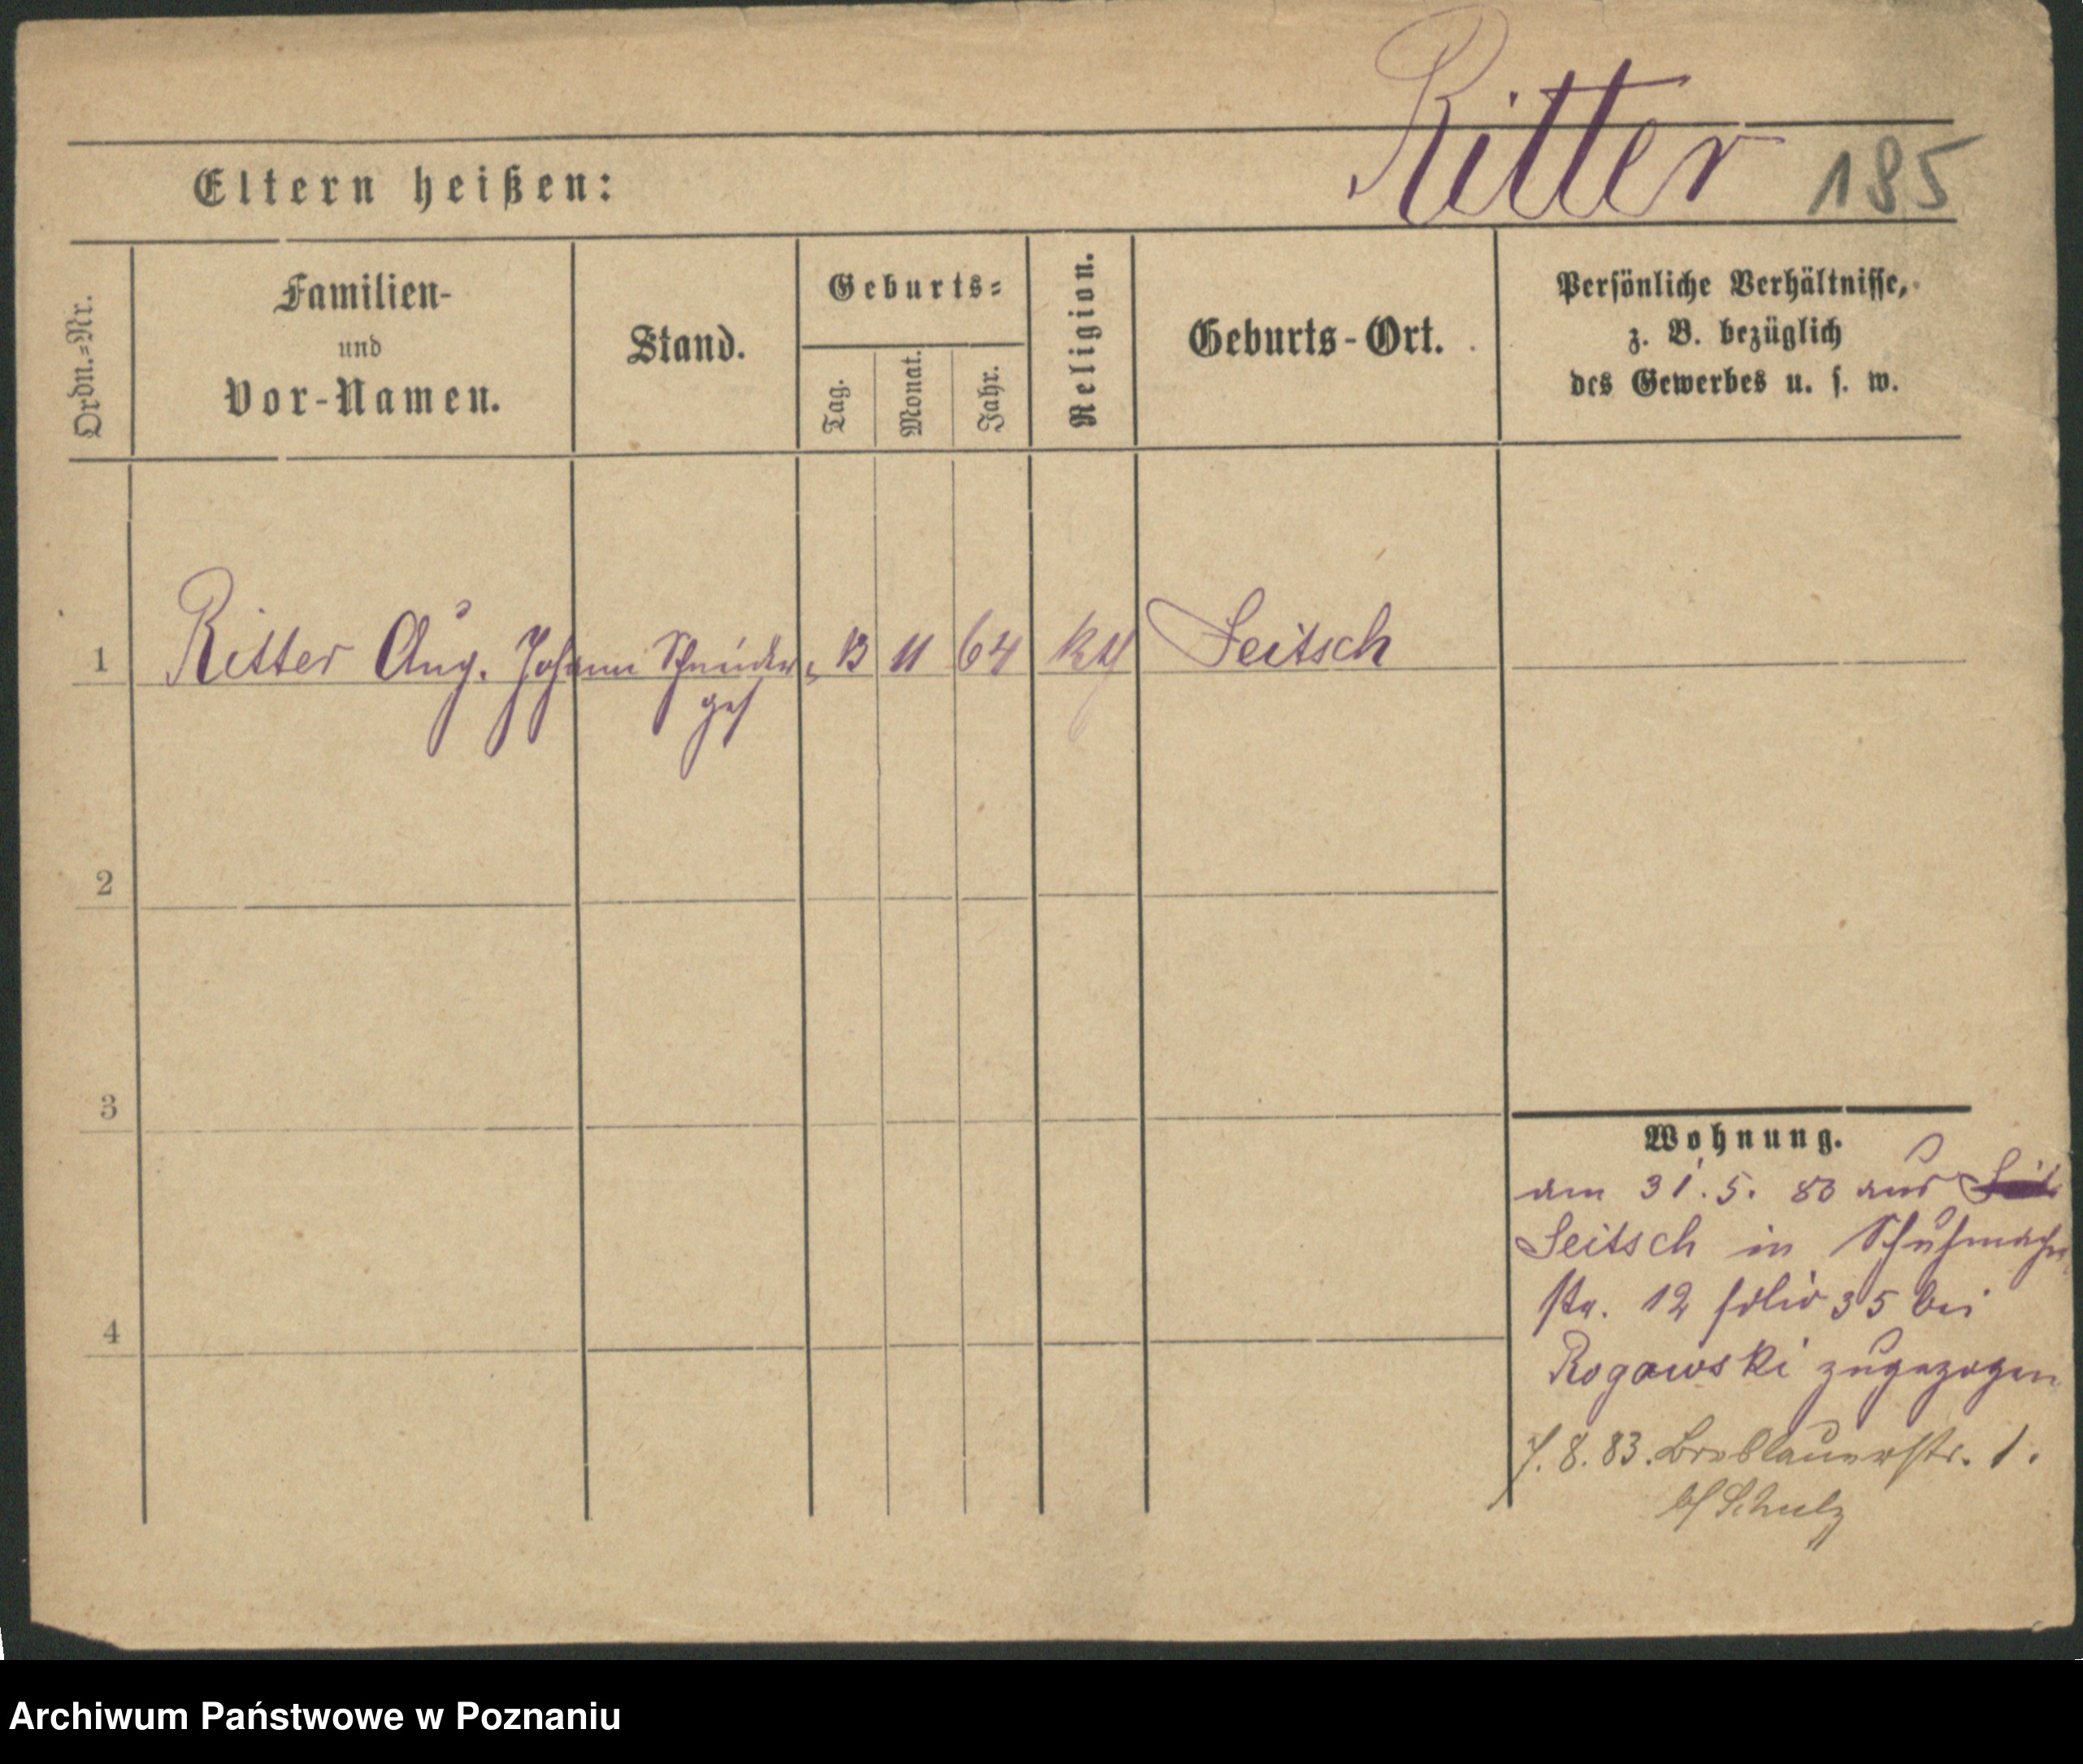 Ritter 185
Eltern heißen:
Ordn.=Nr.
Familien-
und
Vor-Namen.
Stand.
Geburts=
Tag.
Monat.
Jahr.
Religion.
Geburts-Ort.
Persönliche Verhältnisse,
z. B. bezüglich
des Gewerbes u. s. w.
1 Ritter Aug. Johann Schneider 13 11 64 kth Seitsch
ges
2
3
4
Wohnung.
am 31.5. 83 aus
Seitsch in Schuhmacher
str. 12 folio 35 bei
Rogowski zugezogen
7. 8. 83. Breslauerstr. 1.
b/ Schulz
Archiwum Państwowe w Poznaniu